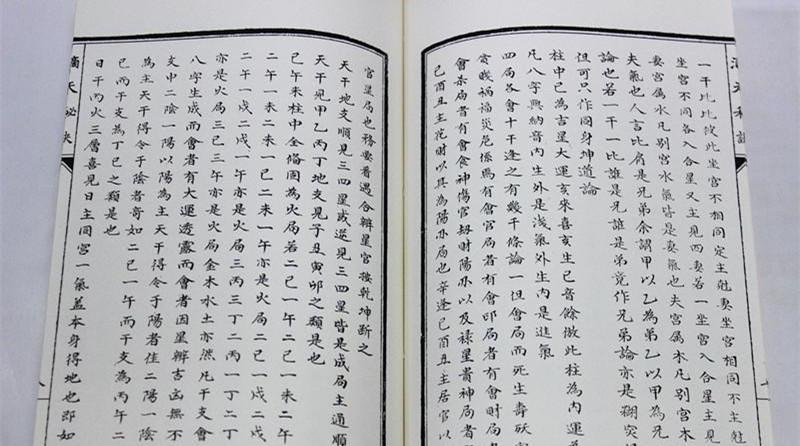 一干比比彼此坐宮不相同定主尅妻坐宮相同不主尅
坐宮不同各入合星又主見西妻若一坐宮入合星主見
妻宮属水凡別宮水氣皆是妻氣也夫宮属木凡別宮木
夫氣也人言比肩是兄弟余謂甲以乙為弟乙以甲為兄
論也若一干一比誰是兄誰是弟竟作兄弟論亦是糊突
但可只作同身坤道論
柱中巳為吉星大運亥來喜亥生巳音餘倣此柱為内運
凡八字無納音内生外是淺氣外生内是進氣
四局各會十干逢之有幾千條論一但會局而死生壽殀
貧賤禍福災危係焉有會官局者有會印局者有會財局
會杀局者有會食神傷官刼財陽亦以及禄星貴神局者
巳酉丑主花財以其為陽亦局也辛逢巳酉丑主居官以
官星局也務要看遇合辦星宮按乾坤断之
天干地支順見三四星或逆見三四星皆是成局主通順
天干見甲乙丙丁地支見子丑寅卯之類是也
巳午未柱中全備固為火局若二巳一午二巳一未二午
二午一未二未一巳二未一午亦是火局二巳一戌二戌
二午一戌二戌一午亦是火局三丙三丁二丙一丁二丁
亦是火局三巳三午亦是火局金木水土亦然凡干支會
八字生成而會者有大運透露而會者因星辦吉凶無不
文中二陰一陽以陽為主天干得令于陽者佳二陽一陰
為主天干得令于陰者奇如二巳一午而干支為丙午二
巳而干支為丁巳之類是也
日干丙火三層喜見日主同宮一氣蓋本身得地也即如
滴天秘訣